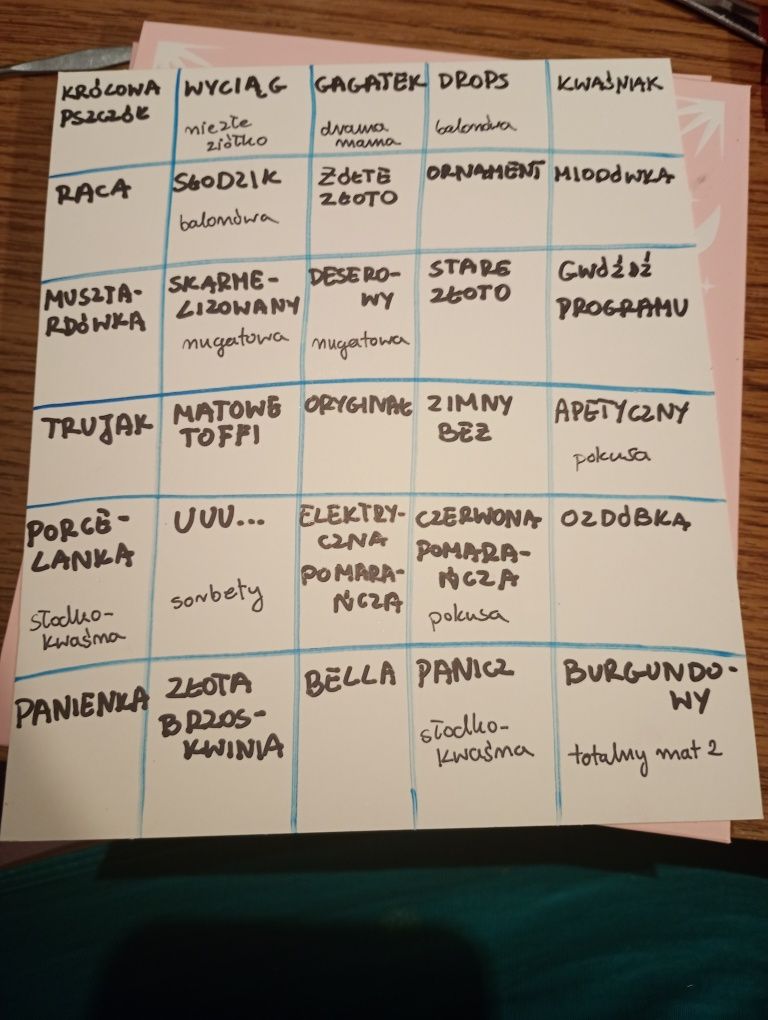 KRÓLOWA
PSZCZÓŁ
WYCIĄG
niezłe
ziółko
GAGATEK
drama
mama
DROPS
balonówa
KWAŚNIAK
RACA
SŁODZIK
balonówa
ŻÓŁTE
ZŁOTO
ORNAMENT
MIODÓWKA
MUSZTA-
RDÓWKA
SKARME-
LIZOWANY
nugatowa
DESERO-
WY
nugatowa
STARE
ZŁOTO
GWÓŹDŹ
PROGRAMU
TRUJAK
MATOWE
TOFFI
ORYGINAŁ
ZIMNY
BEZ
APETYCZNY
pokusa
PORCE-
LANKA
słodko-
kwaśna
UUU...
sorbety
ELEKTRY-
CZNA
POMARA-
ŃCZA
CZERWONA
POMARA-
ŃCZA
pokusa
OZDÓBKA
PANIENKA
ZŁOTA
BRZOS-
KWINIA
BELLA
PANICZ
słodko-
kwaśna
BURGUNDO-
WY
totalny mat 2